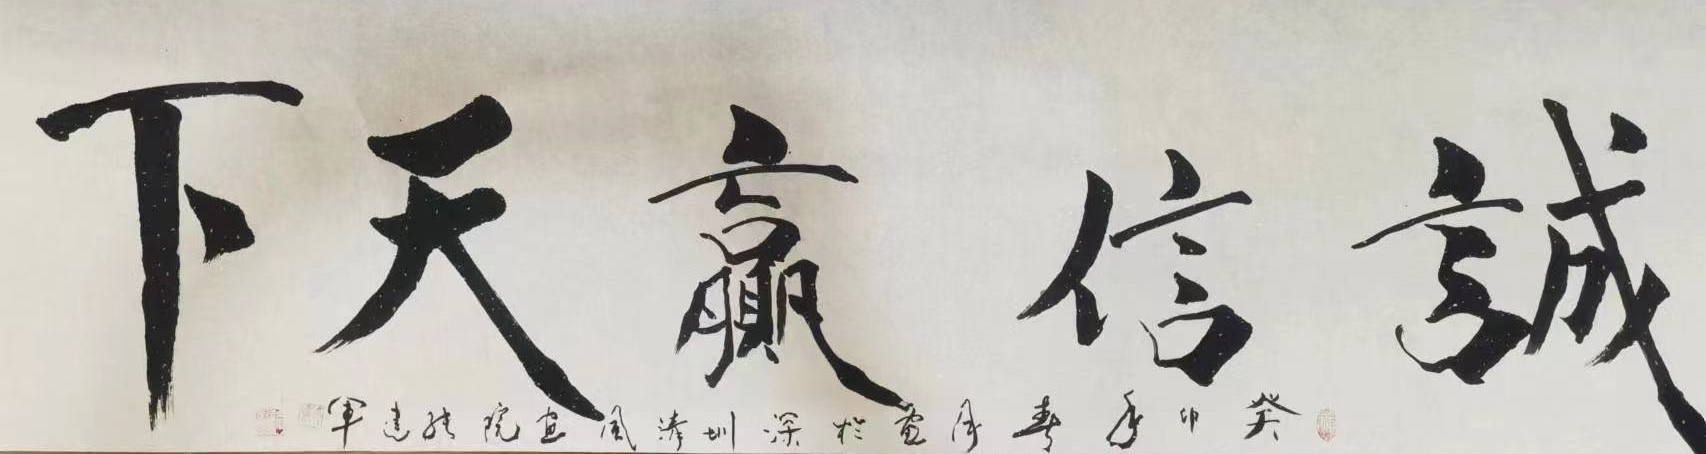 誠信贏天下
癸卯年春月書於深圳清風画院張建軍